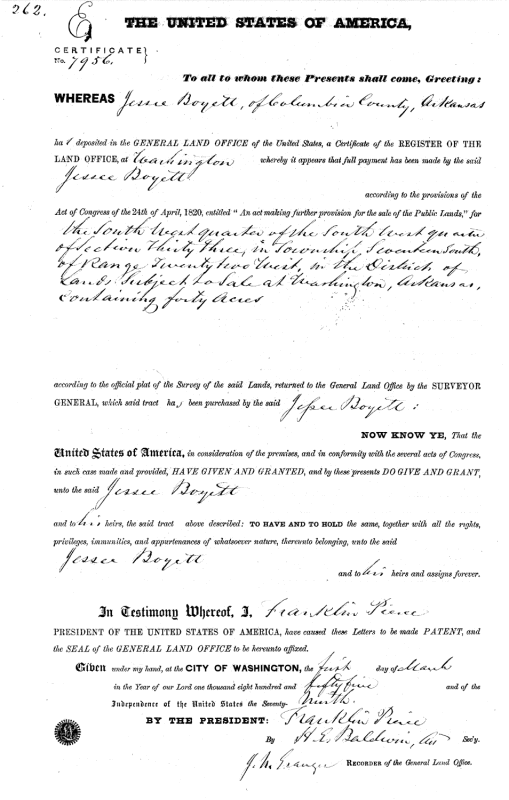 262.
THE UNITED STATES OF AMERICA,
CERTIFICATE
No. 7956.
To all to whom these Presents shall come, Greeting:
WHEREAS Jesse Boyett, of Columbia County, Arkansas
ha deposited in the GENERAL LAND OFFICE of the United States, a Certificate of the REGISTER OF THE
LAND OFFICE, at Washington whereby it appears that full payment has been made by the said
Jessee Boyett
according to the provisions of the
Act of Congress of the 24th of April, 1820, entitled "An act making further provision for the sale of the Public Lands," for
the South West quarter of the South West quarter
of Section Thirty Three, in Township Seventeen South,
of Range Twenty two West, in the District of
Lands Subject to Sale at Washington, Arkansas,
Containing forty Acres
according to the official plat of the Survey of the said Lands, returned to the General Land Office by the SURVEYOR
GENERAL, which said tract has been purchased by the said Jessee Boyett:
NOW KNOW YE, That the
United States of America, in consideration of the premises, and in conformity with the several acts of Congress,
in such case made and provided, HAVE GIVEN AND GRANTED, and by these presents DO GIVE AND GRANT,
unto the said Jessee Boyett
and to his heirs, the said tract above described: TO HAVE AND TO HOLD the same, together with all the rights,
privileges, immunities, and appurtenances of whatsoever nature, thereunto belonging, unto the said
Jessee Boyett
and to his heirs and assigns forever.
In Testimony Whereof, I, Franklin Pierce
PRESIDENT OF THE UNITED STATES OF AMERICA, have caused these Letters to be made PATENT, and
the SEAL of the GENERAL LAND OFFICE to be hereunto affixed.
Given under my hand, at the CITY OF WASHINGTON, the first day of March
in the Year of our Lord one thousand eight hundred and fifty five and of the
Independence of the United States the Seventy-ninth.
BY THE PRESIDENT: Franklin Pierce
By H. E. Baldwin, Sec'y.
J. N. Granger RECORDER of the General Land Office.